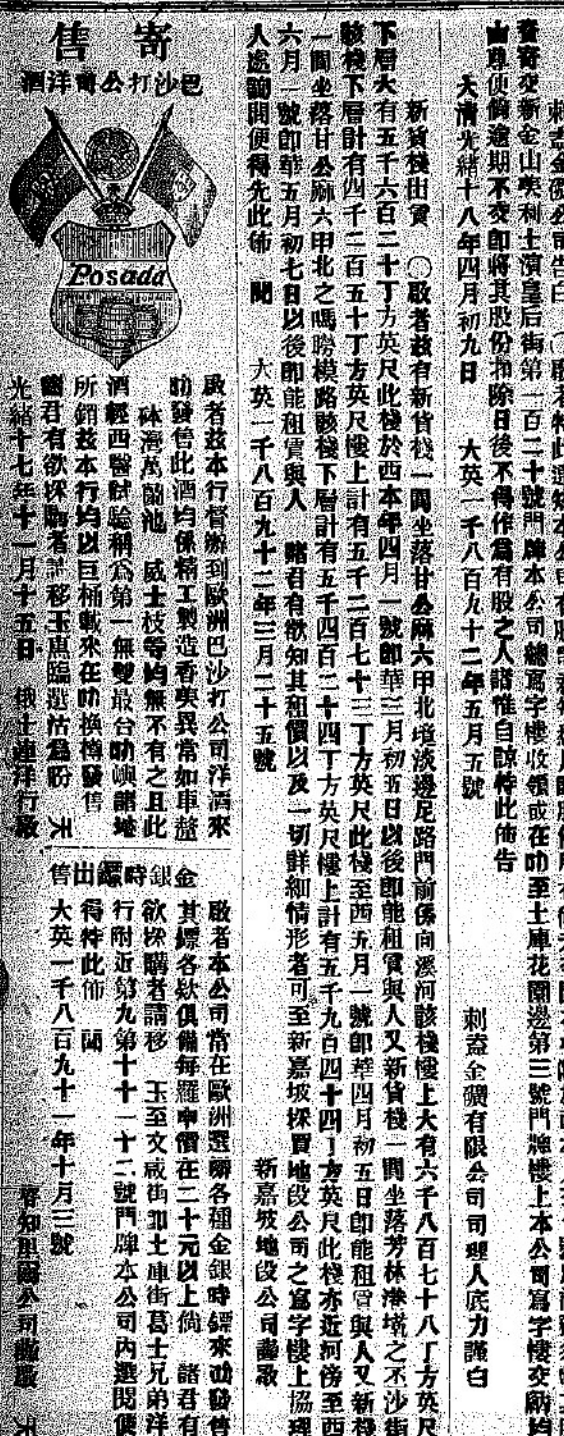 大清光緒十八年四月初九日　大英一千八百九十二年五月五號
刺蓋金礦有限公司司理人底力謹白
新貨棧出賃　〇啟者兹有新貨棧一間坐落甘公蔴六甲北境淡邊尼路門前係向溪河該棧樓上大有六千八百七十八丁方英尺
下層大有五千六百二十丁方英尺此棧於西本年四月一號即華三月初五日以後即能租賃與人又新貨棧一間坐落芳林港墘之不沙街
該棧下層計有四千二百五十丁方英尺樓上計有五千二百七十三丁方英尺此棧至西五月一號即華四月初五日即能租賃與人又新棧
一間坐落甘公蔴六甲北之嗎嘮模路該棧下層計有五千四百二十四丁方英尺樓上計有五千九百四十四丁方英尺此棧亦近河傍至西
六月一號即華五月初七日以後即能租賃與人　諸君有欲知其租價以及一切詳細情形者可至新嘉坡採買地段公司之寫字樓上協理
人處詢問便得先此佈　聞　大英一千八百九十二年三月二十五號
新嘉坡地段公司謹啟
寄售
巴沙打公司洋酒
Posada
啟者兹本行督辦到歐洲巴沙打公司洋酒來
叻發售此酒均係精工製造香味異常如車厘
砵灣萬蘭池　威士枝等均無不有之且此
酒經西醫試驗稱為第一無雙最合叻嶼諸地
所銷兹本行均以巨桶載來在叻換樽發售
光緒十七年十一月十五日
金銀時鏢出售
啟者本公司常在歐洲選辦各種金銀時鏢來叻發售
其鏢各欵俱備每羅申價在二十元以上倘　諸君有
欲採購者請移　玉至文咸街即土庫街葛士兄弟洋
行附近第九第十十一十二號門牌本公司內選閱便
得特此佈　聞
大英一千八百九十一年十月三號